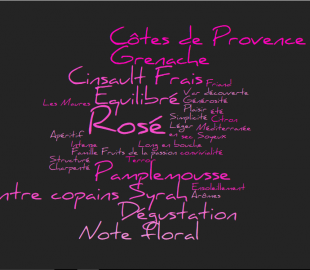 Côtes de Provence
Grenache
Cinsault Frais Fraud
Var découverte
Les Maures Equilibré Générosité
Plaisir été
Rosé Simplicité Citron
Léger Méditerranée
Apéritif en sec Soyeux
Intense Long en bouche
Famille Fruits de la passion convivialité
Structuré Terroir
Charpenté
Pamplemousse
Ensoleillement
ntre copains Syrah Arômes
Dégustation
Note floral